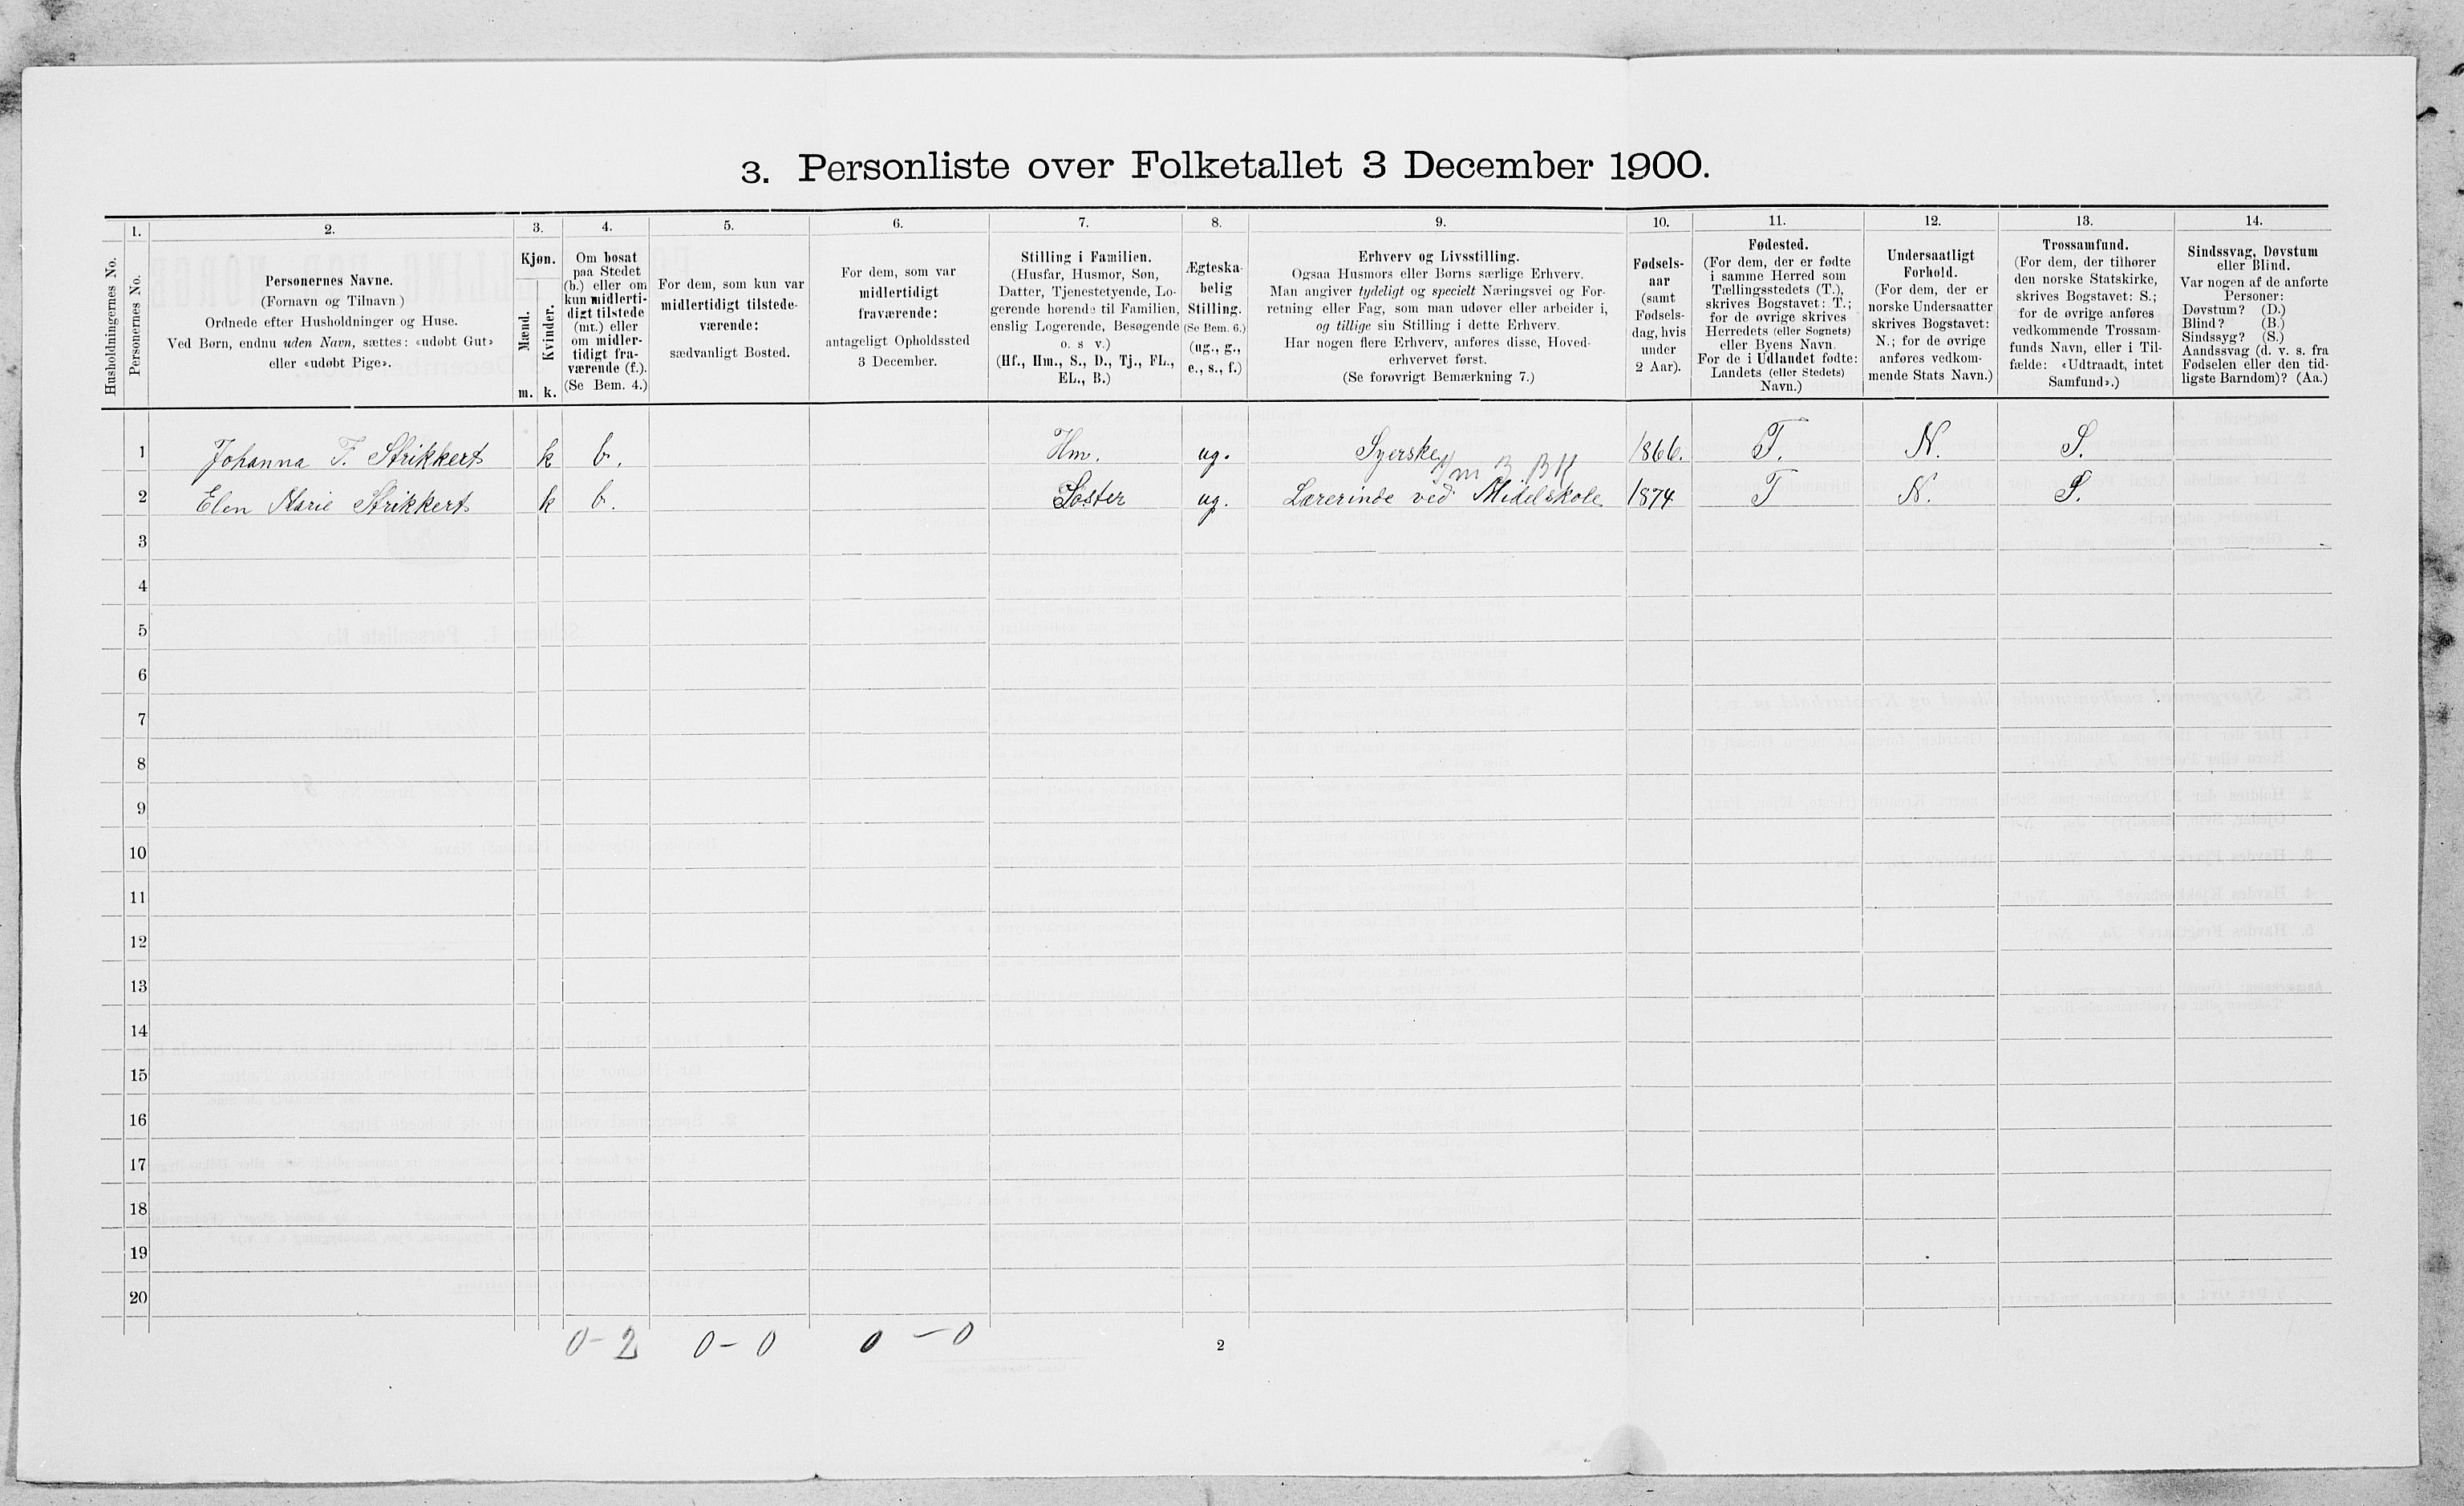 3. Personliste over Folketallet 3 December 1900.
Husholdningernes No.
1.
Personernes No.
2.
Personernes Navne.
(Fornavn og Tilnavn )
Ordnede efter Husholdninger og Huse.
Ved Børn, endnu uden Navn, sættes: «udøbt Gut»
eller «udøbt Pige».
3.
Kjøn.
Mænd.
Kvinder.
m. k.
4.
Om bosat
paa Stedet
(b.) eller om
kun midlerti-
digt tilstede
(mt.) eller
om midler-
tidigt fra-
værende (f.).
(Se Bem. 4.)
5.
For dem, som kun var
midlertidigt tilstede-
værende:
sædvanligt Bosted.
6.
For dem, som var
midlertidigt
fraværende:
antageligt Opholdssted
3 December.
7.
Stilling i Familien.
(Husfar, Husmor, Søn,
Datter, Tjenestetyende, Lo-
gerende hørende til Familien,
enslig Logerende, Besøgende
o. s v.)
(Hf., Hm., S., D., Tj., FL.,
EL., B.)
8.
Ægteska-
belig
Stilling.
(Se Bem. 6.)
(ug., g.,
e., s., f.)
9.
Erhverv og Livsstilling.
Ogsaa Husmors eller Børns særlige Erhverv.
Man angiver tydeligt og specielt Næringsvei og For-
retning eller Fag, som man udøver eller arbeider i,
og tillige sin Stilling i dette Erhverv.
Har nogen flere Erhverv, anføres disse, Hoved-
erhvervet først.
(Se forøvrigt Bemærkning 7.)
10.
Fødsels-
aar
(samt
Fødsels-
dag, hvis
under
2 Aar).
11.
Fødested.
(For dem, der er fødte
i samme Herred som
Tællingsstedets (T.),
skrives Bogstavet: T.;
for de øvrige skrives
Herredets (eller Sognets)
eller Byens Navn.
For de i Udlandet fødte:
Landets (eller Stedets)
Navn.)
12.
Undersaatligt
Forhold.
(For dem, der er
norske Undersaatter
skrives Bogstavet:
N.; for de øvrige
anføres vedkom-
mende Stats Navn.)
13.
Trossamfund.
(For dem, der tilhører
den norske Statskirke,
skrives Bogstavet: S.;
for de øvrige anføres
vedkommende Trossam-
funds Navn, eller i Til-
fælde: «Udtraadt, intet
Samfund».)
14.
Sindssvag, Døvstum
eller Blind.
Var nogen af de anførte
Personer:
Døvstum? (D.)
Blind? (B.)
Sindssyg? (S.)
Aandssvag (d. v. s. fra
Fødselen eller den tid-
ligste Barndom)? (Aa.)
1 Johanna F. Strikkert k b. Hm. ug. Syerske 1866. T. N. S.
m B BK
2 Elen Marie Strikkert k b. Søster ug. Lærerinde ved Midelskole 1874 T N. S.
3
4
5
6
7
8
9
10
11
12
13
14
15
16
17
18
19
20
0-2 0-0 0-0
2